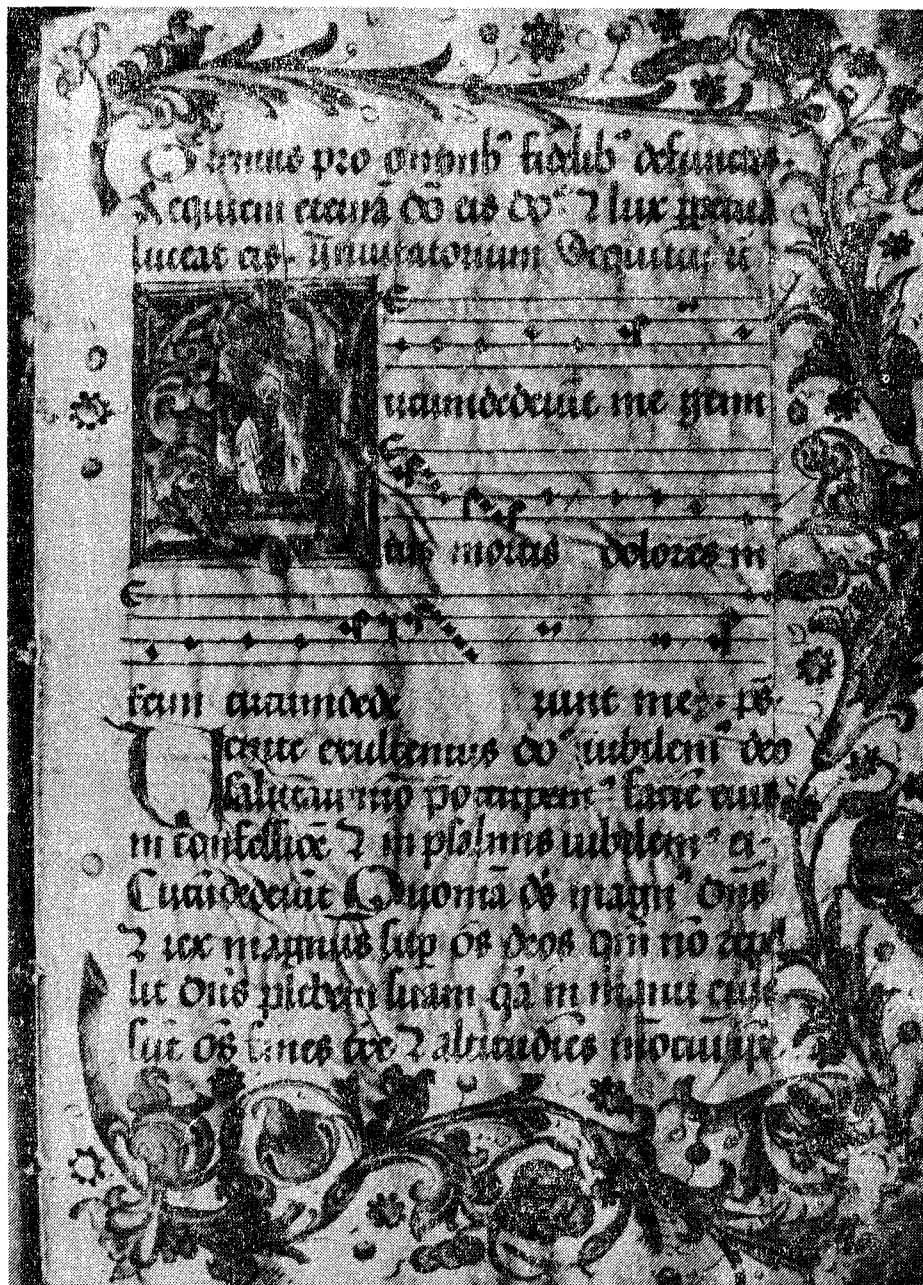 Oremus pro omnib' fidelib' defunctis.
Requiem eternā dō eis do' ⁊ lux ꝑpetua
luceat eis. Inuitatorium Sequitur
ircumdederūt me gem
tus mortis dolores in
ferni circumdede runt me. ps.
Uenite exultemus do' iubilem' deo
salutari nrō p̄occupem' faciē eius
in confessiōe ⁊ in psalmis iubilem' ei.
Circūdederūt Quoniā ds magn' dns
⁊ rex magnus sup os deos qm nō repel
lit dns plebem suam qa in manu eius
sūt os fines tre ⁊ altitudies mōtiū ip̄e